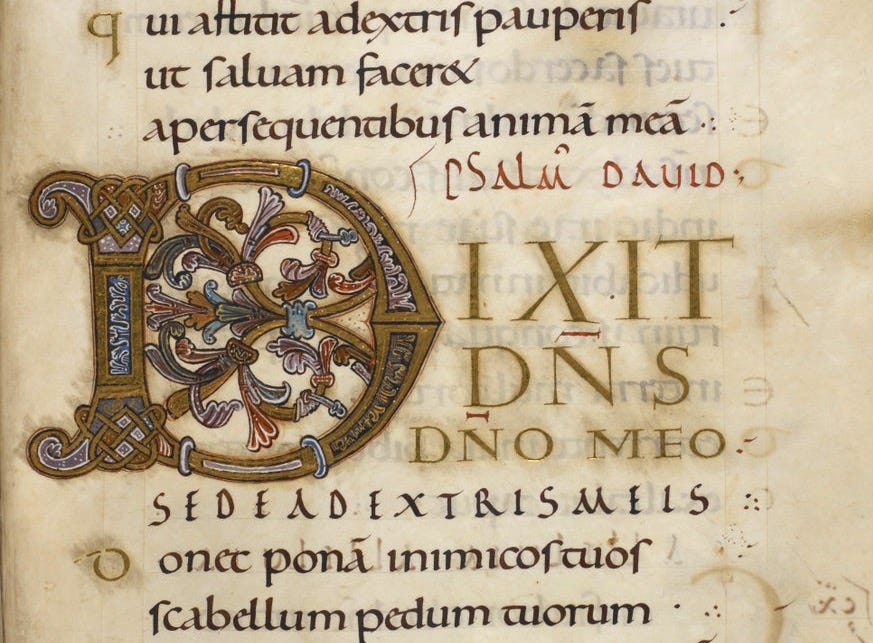 qui astitit adextris pauperis
ut saluam facer&
apersequentibus animā meā
PSALM̄ DAVID
DIXIT
DN̄S
DN̄O MEO
SEDE AD EXTRIS MEIS
Donec ponā inimicos tuos
scabellum pedum tuorum